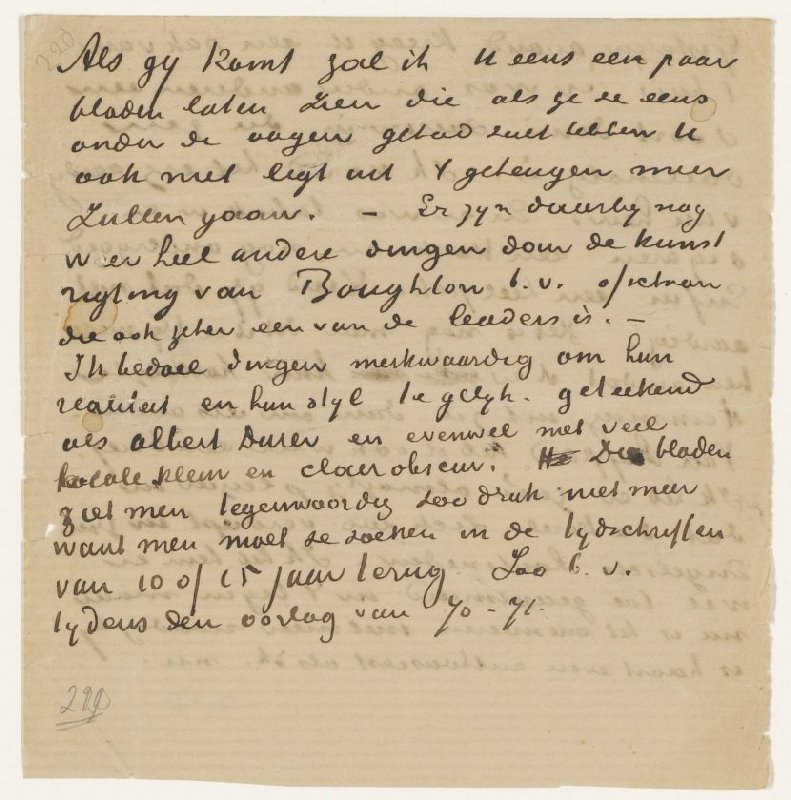 Als gy komt zal ik U eens een paar
bladen laten zien die als ge ze eens
onder de oogen gehad zult hebben U
ook niet ligt uit 't geheugen meer
zullen gaan. — Er zyn daarby nog
weer heel andere dingen dan de kunst
rigting van Boughton b.v. ofschoon
die ook zeker een van de leaders is. —
Ik bedoel dingen merkwaardig om hun
realiteit en hun styl te gelyk. geteekend
als albert Durer en evenwel met veel
lokale kleur en clair obscur. Die bladen
ziet men tegenwoordig zoo druk niet meer
want men moet ze zoeken in de tydschriften
van 10 of 15 jaar terug. Zoo b.v.
tydens den oorlog van 70-71.